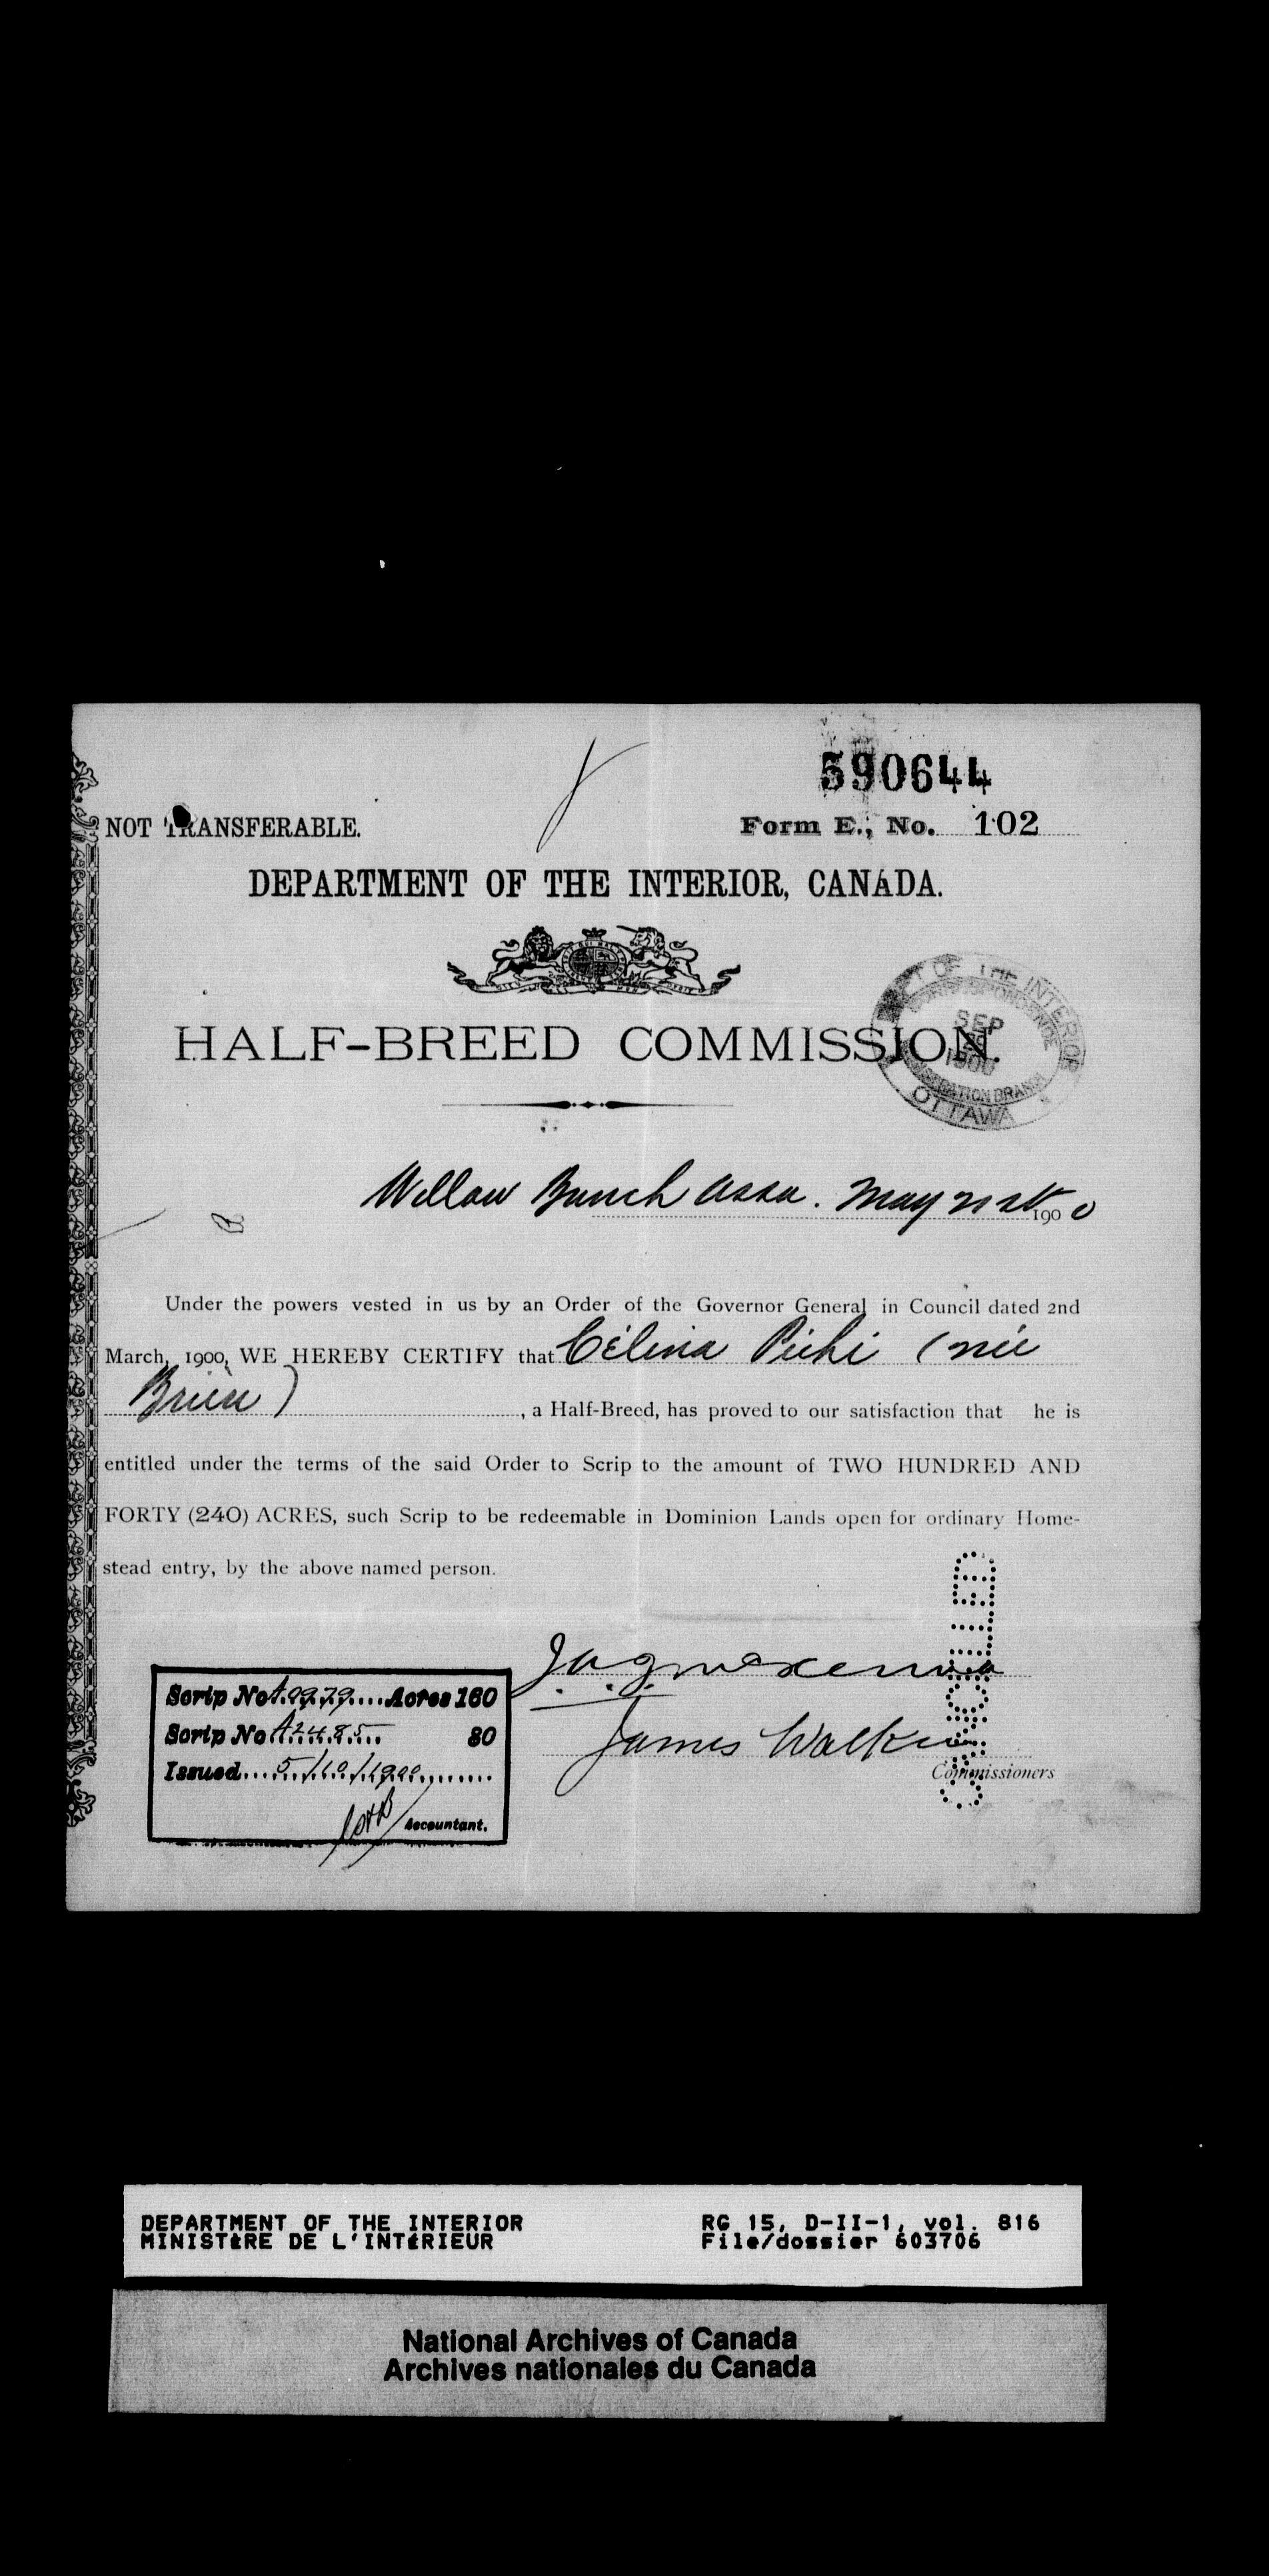 590644
NOT TRANSFERABLE.
Form E., No. 102
DEPARTMENT OF THE INTERIOR, CANADA.
HALF-BREED COMMISSION.
DEPT OF THE INTERIOR
SEP
1900
OTTAWA
Willow Bunch Assa. May 21st 1900
Under the powers vested in us by an Order of the Governor General in Council dated 2nd
March, 1900, WE HEREBY CERTIFY that Célina Piché (née
Brièn)
, a Half-Breed, has proved to our satisfaction that he is
entitled under the terms of the said Order to Scrip to the amount of TWO HUNDRED AND
FORTY (240) ACRES, such Scrip to be redeemable in Dominion Lands open for ordinary Home-
stead entry, by the above named person.
J.A.J. McKenna
James Walker
Commissioners
CANCELLED
Scrip No A.0979 .... Acres 160
Scrip No A2485 80
Issued.... 5/10/1900
Accountant.
DEPARTMENT OF THE INTERIOR
MINISTÈRE DE L'INTÉRIEUR
RG 15, D-II-1, vol. 816
File/dossier 603706
National Archives of Canada
Archives nationales du Canada